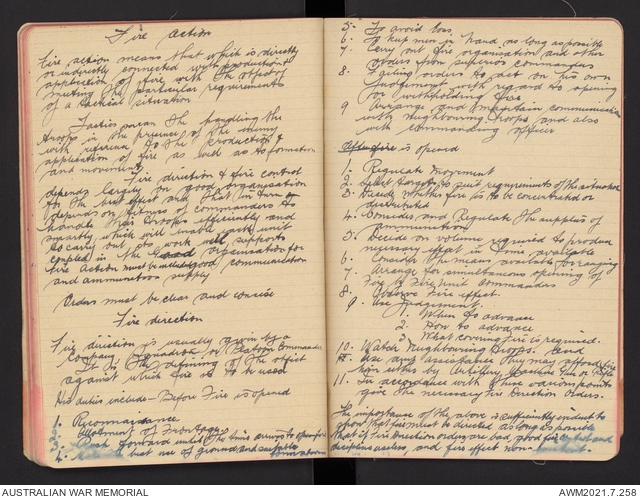 Fire action
Fire action means that which is directly
or indirectly connected with production &
application of fire with the object of
meeting the particular requirements
of a tactical situation
Tactics mean the handling the
troops in the presence of the enemy
with reference to the production &
application of fire as well as to formation
and movement.
Fire direction & fire control
depends largely on good organisation
to the best effect and that in turn
depends on fitness of commanders to
handle their troops efficiently and
smartly which will enable each unit
to carry out its work well
coupled in the good organisation for
Fire Action must be good communication
and ammunition supply
Orders must be clear and concise
Fire direction
Fire direction is usually given by a
Company, Squadron or Platoon Commander
It is the defining of the object
against which fire is to be used
His duties include - Before Fire is opened
1. Reconnaisance
2. Allotment of Frontage
3. Push forward until the time arrives to open fire
4. best use of ground and suitable formations
5. To avoid loss
6. To keep men in hand as long as possible
7. Carry out fire organisation and other
orders from superior commanders
8. Failing orders to act on his own
judgement with regard to opening
or withholding fire
9 Arrange and maintain communication
with neighbouring troops and also
with commanding officer
After fire is opened
1. Regulate Movement
2. Select targets to suit requirements of the situation
3. Decide whether fire is to be concentrated or
distributed
4. Consider and Regulate the supplies of
ammunition
5. Decide on volume required to produce
necessary effect in time available
6. Consider the means available for ranging
7. Arrange for simultaneous opening of
fire by Fire unit Commanders
8. Observe Fire effect.
9. Use Judgement.
1. When to advance
2. How to advance
3 What covering fire is required.
10. Watch Neighbouring Troops. and
Use any assistance they may afford
either by Artillery, Machine Gun or Rifle
11. In accordance with these various points
give the necessary Fire Direction Orders.
The importance of the above is sufficiently evident to
show that fire must be directed as long as possible
that if Fire Direction orders are bad good fire control and
discipline useless, and fire effect non-existent.
AUSTRALIAN WAR MEMORIAL
AWM2021.7.258